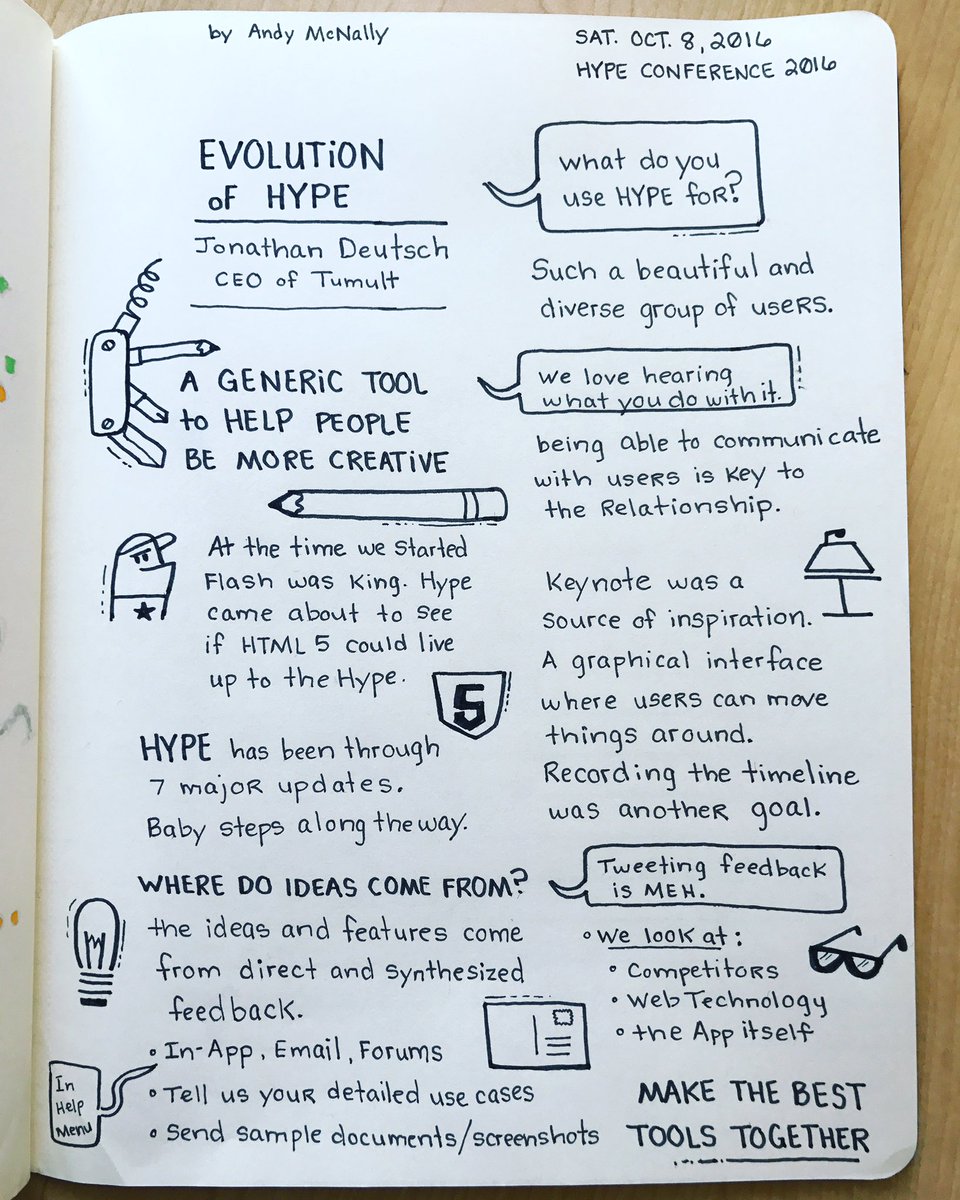 by Andy McNally
SAT. OCT. 8, 2016
HYPE CONFERENCE 2016
EVOLUTiON
oF HYPE
Jonathan Deutsch
CEO of Tumult
A GENERiC TOOL
to HELP PEOPLE
BE MORE CREATiVE
At the time we started
Flash was King. Hype
came about to see
if HTML 5 could live
up to the Hype.
5
HYPE has been through
7 major updates.
Baby steps along the way.
WHERE DO IDEAS COME FROM?
the ideas and features come
from direct and synthesized
feedback.
• In-App, Email, Forums
In
Help
Menu
• Tell us your detailed use cases
• Send sample documents/screenshots
what do you
use HYPE for?
Such a beautiful and
diverse group of users.
we love hearing
what you do with it.
being able to communicate
with users is key to
the Relationship.
Keynote was a
source of inspiration.
A graphical interface
where users can move
things around.
Recording the timeline
was another goal.
Tweeting feedback
is MEH.
• We look at:
• Competitors
• Web Technology
• the App itself
MAKE THE BEST
TOOLS TOGETHER